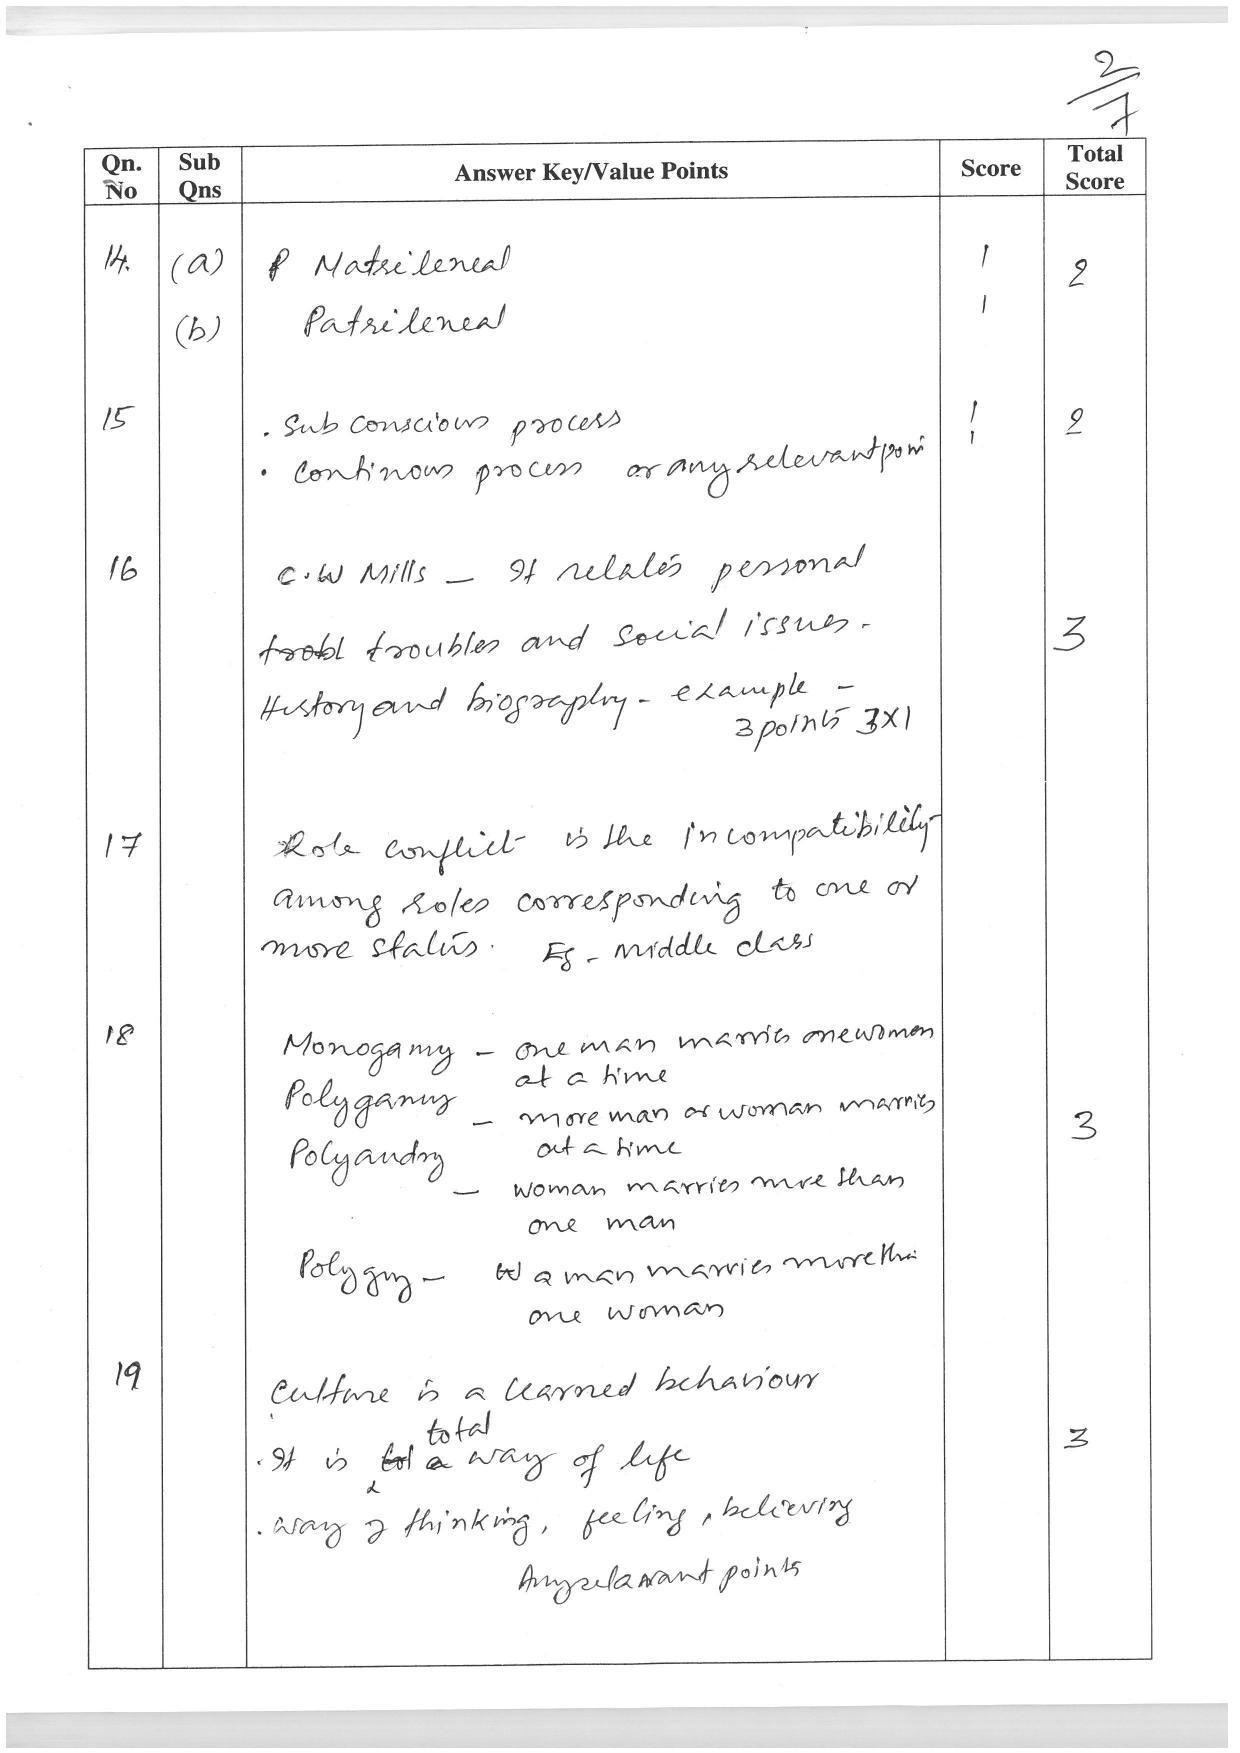 2/7
Qn. No Sub Qns Answer Key/Value Points Score Total Score
14. (a) Matrileneal 1 2
(b) Patrileneal 1
15 . Sub conscious process 1 2
. Continous process or any relevant poin 1
16 C.W Mills – It relates personal
trobl troubles and social issues. 3
History and biography – example –
3 points 3X1
17 Role conflict is the incompatibility
among roles corresponding to one or
more status. Eg – middle class
18 Monogamy – one man marries one women
at a time
Polygamy – more man or woman marries
at a time 3
Polyandry – woman marries more than
one man
Polygny – W a man marries more tha
one woman
19 Culture is a learned behaviour
. It is tol a total way of life 3
. Way of thinking, feeling, believing
Any relavant points